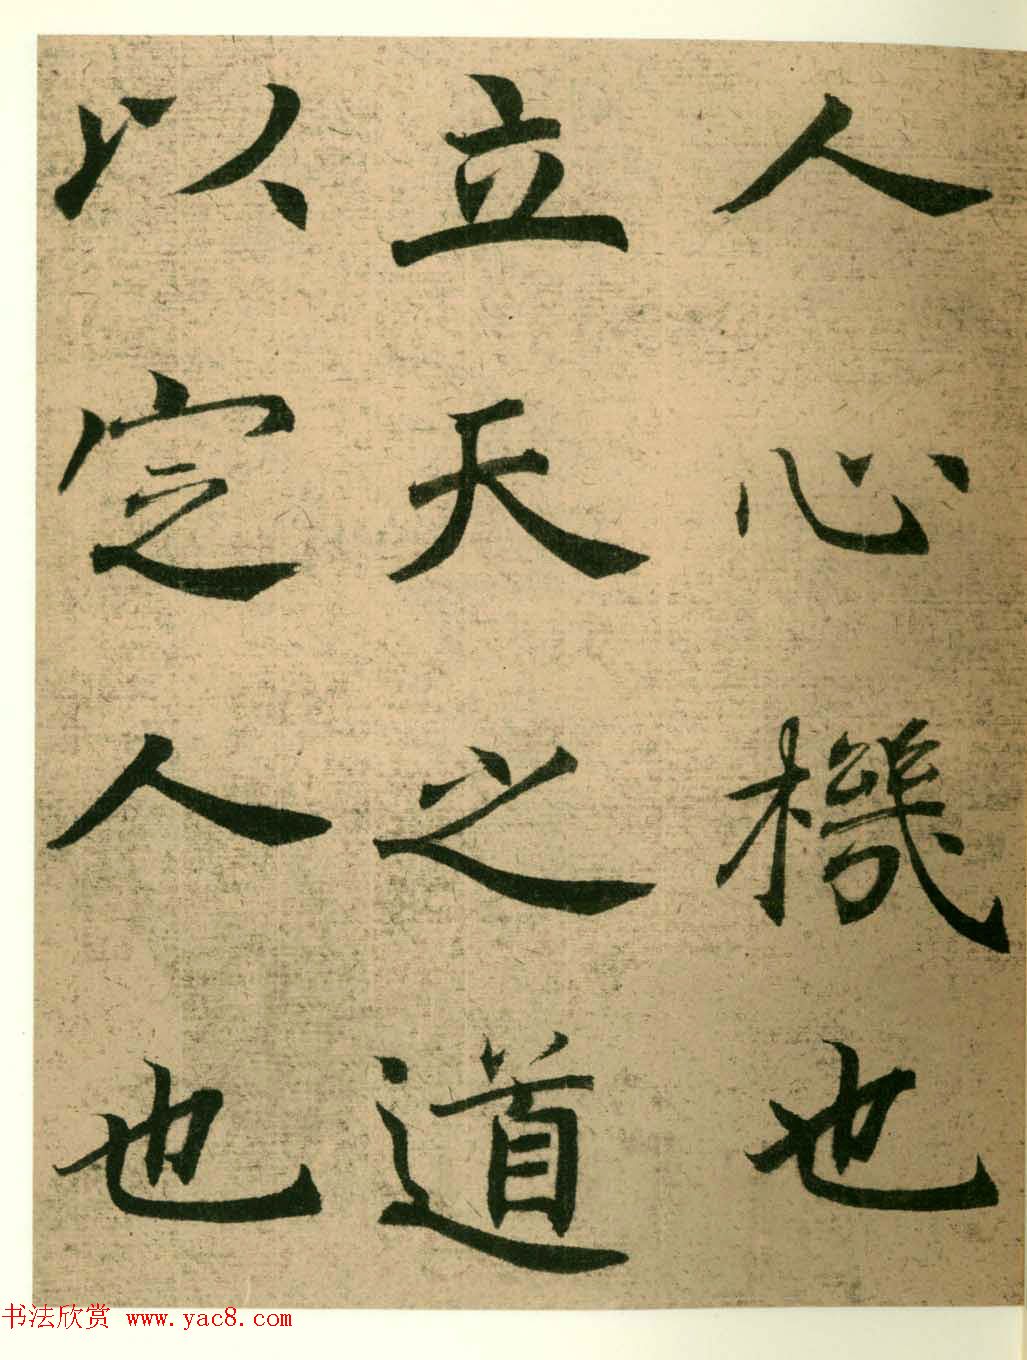 人心機也
立天之道
以定人也
书法欣赏 www.yac8.com